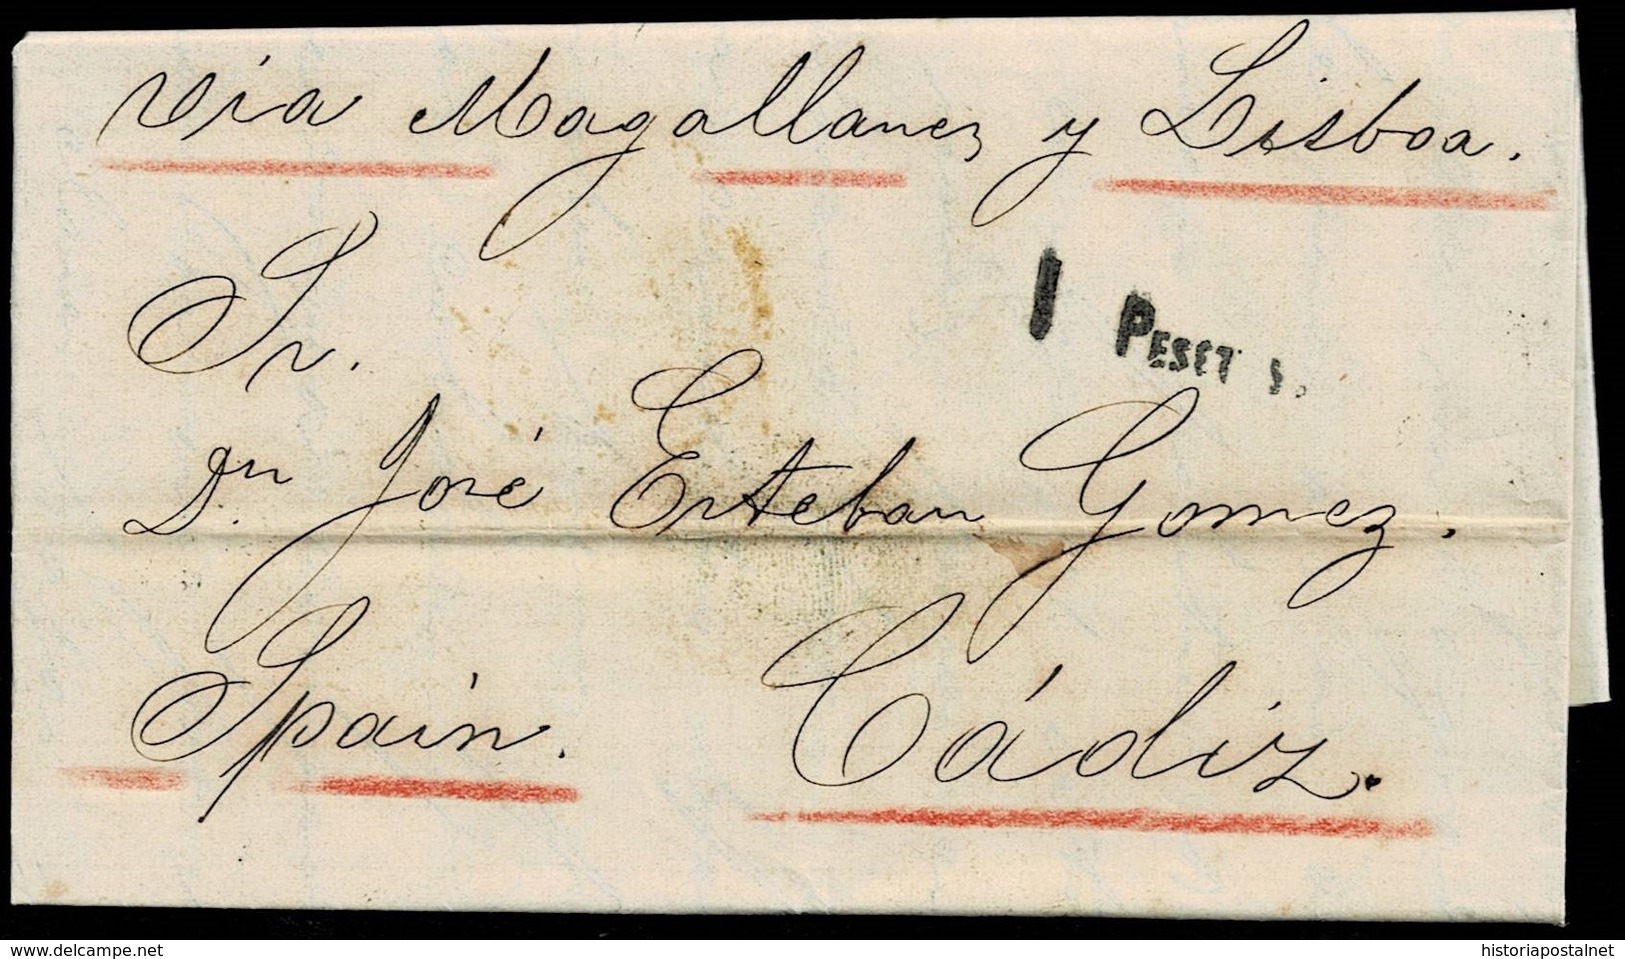 via Magallanes y Lisboa.
1 PESET S.
Sr.
Dn. José Esteban Gomez.
Spain. Cádiz.
delcampe.net
historiapostalnet